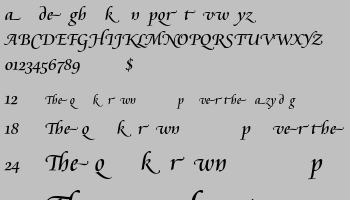 a de gh k n pqr t vw yz
ABCDEFGHIJKLMNOPQRSTUVWXYZ
0123456789 $
12 The Q k r wn p ve r the a zy d g
18 The Q k r wn p ve r the
24 The Q k r wn p